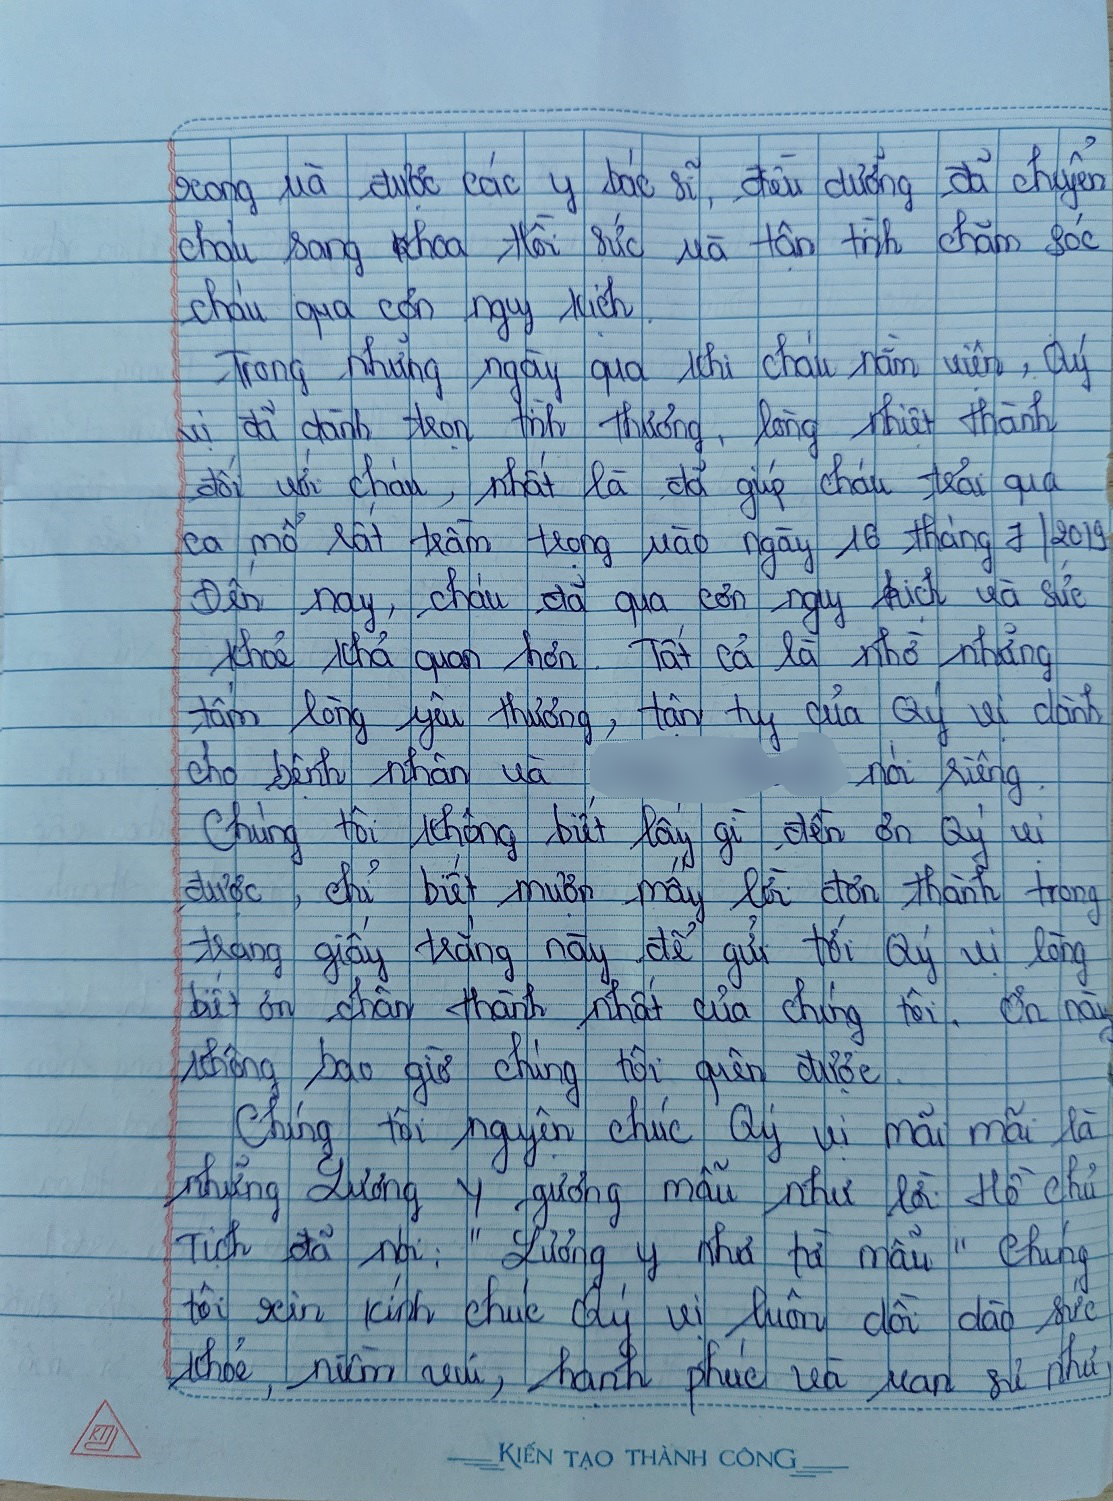 xong và được các y bác sĩ, điều dưỡng đã chuyển
cháu sang khoa Hồi sức và tận tình chăm sóc
cháu qua cơn nguy kịch.
Trong những ngày qua khi cháu nằm viện, Quý
vị đã dành trọn tình thương, lòng nhiệt thành
đối với cháu, nhất là đã giúp cháu trải qua
ca mổ rất trầm trọng vào ngày 16 tháng 7/2019
Đến nay, cháu đã qua cơn nguy kịch và sức
khỏe khả quan hơn. Tất cả là nhờ những
tấm lòng yêu thương, tận tụy của Quý vị dành
cho bệnh nhân và nói riêng.
Chúng tôi không biết lấy gì đền ơn Quý vị
được, chỉ biết mượn mấy lời đơn thành trong
trang giấy trắng này để gửi tới Quý vị lòng
biết ơn chân thành nhất của chúng tôi. Ơn này
không bao giờ chúng tôi quên được.
Chúng tôi nguyện chúc Quý vị mãi mãi là
những Lương y gương mẫu như lời Hồ chủ
Tịch đã nói: "Lương y như từ mẫu" Chúng
tôi xin kính chúc Quý vị luôn dồi dào sức
khỏe, niềm vui, hạnh phúc và vạn sự như
KIẾN TẠO THÀNH CÔNG